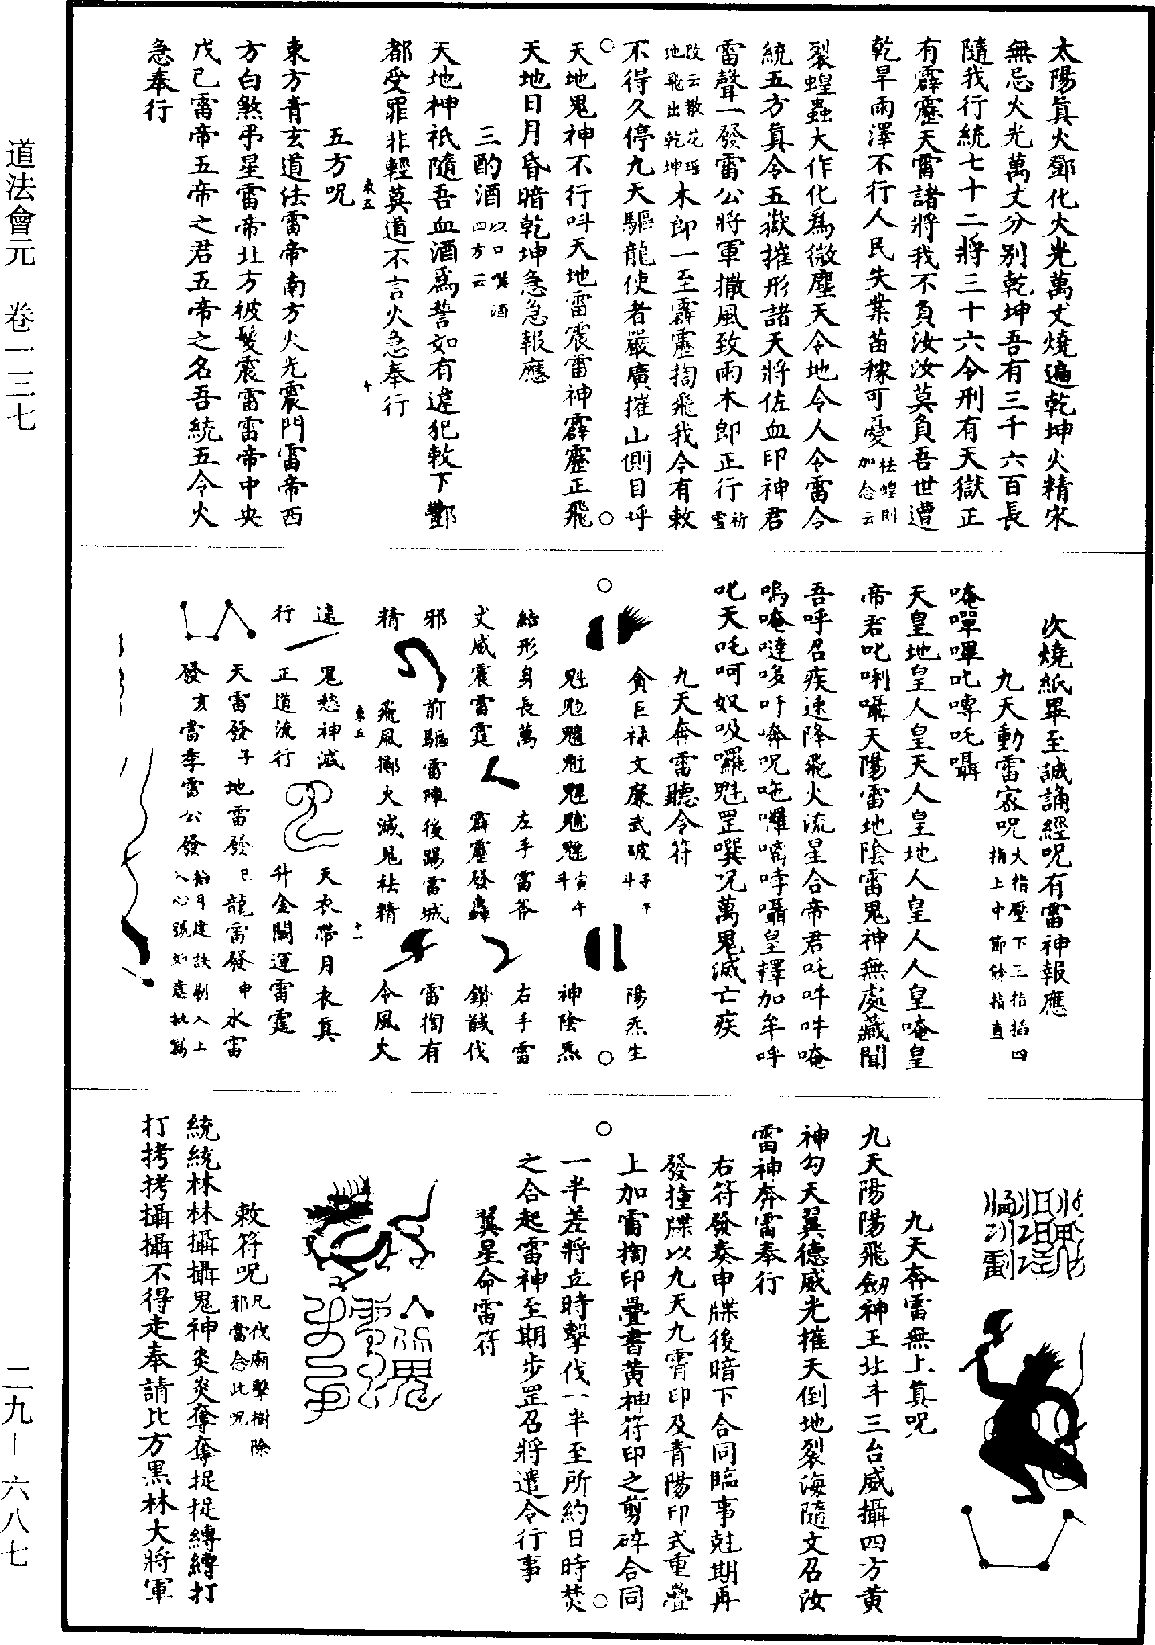 道法會元　卷一三七
二九－六八七
太陽眞火鄧化火光萬丈燒遍乾坤火精宋
無忌火光萬丈分别乾坤吾有三千六百長
隨我行統七十二將三十六令刑有天獄正
有霹靂天雷諸將我不負汝汝莫負吾世遭
乾旱雨澤不行人民失業苗稼可憂祛蝗則加念云
裂蝗蟲大作化爲微塵天令地令人令雷令
統五方眞令五嶽摧形諸天將佐血印神君
雷聲一發雷公將軍撒風致雨木郎正行祈雪
改云散花瑶地飛出乾坤木郎一至霹靂搊飛我今有敕
不得久停九天驅龍使者嚴廣摧山側目呼
天地鬼神不行呌天地雷震雷神霹靂正飛
天地日月昏暗乾坤急急報應
三酌酒以口噀酒四方云
天地神祇隨吾血酒爲誓如有違犯敕下酆
都受罪非輕莫道不言火急奉行
五方呪
東方青玄道法雷帝南方火光震門雷帝西
方白煞弔星雷帝北方被髮震雷雷帝中央
戊己雷帝五帝之君五帝之名吾統五令火
急奉行
次燒紙畢至誠誦經呪有雷神報應
九天動雷寂呪大指壓下三指搯四指上中節餘指直
唵嘽嗶叱嚩吒囁
天皇地皇人皇天人皇地人皇人人皇唵皇
帝君叱唎囁天陽雷地陰雷鬼神無處藏聞
吾呼召疾速降飛火流星合帝君吒吽吽唵
嗚唵噠哆吁㖹呪吔囉唷哮囁皇釋加牟呼
叱天吒呵奴吸囉魁罡噀况萬鬼滅亡疾
九天奔雷聽令符
貪巨祿文廉武破子午斗
陽炁生
寅午斗
神陰炁
結形身長萬
左手雷斧
右手雷
丈威震雷霆
霹靂發轟
鑽馘伐
邪
前驅雷陣後踢雷城
雷搊有
精
飛風擲火滅鬼祛精
令風火
速
鬼愁神滅
天衣帶月衣眞
行
正道流行
升金闕運雷霆
天雷發子地雷發巳龍雷發申水雷
發亥當季雷公發
九天奔雷無上眞呪
九天陽陽飛劒神王北斗三台威攝四方黄
神勾天翼德威光摧天倒地裂海隨文召汝
雷神奔雷奉行
右符發奏申牒後暗下合同臨事尅期再
發撞牒以九天九霄印及青陽印式重疊
上加雷搊印疊書黄神符印之剪碎合同
一半差將立時擊伐一半至所約日時焚
之合起雷神至期步罡召將遣令行事
翼星命雷符
敕符呪凡伐廟擊樹除邪當念此呪
統統林林攝攝鬼神炎炎奪奪捉捉縛縛打
打拷拷攝攝不得走奉請比方黑林大將軍